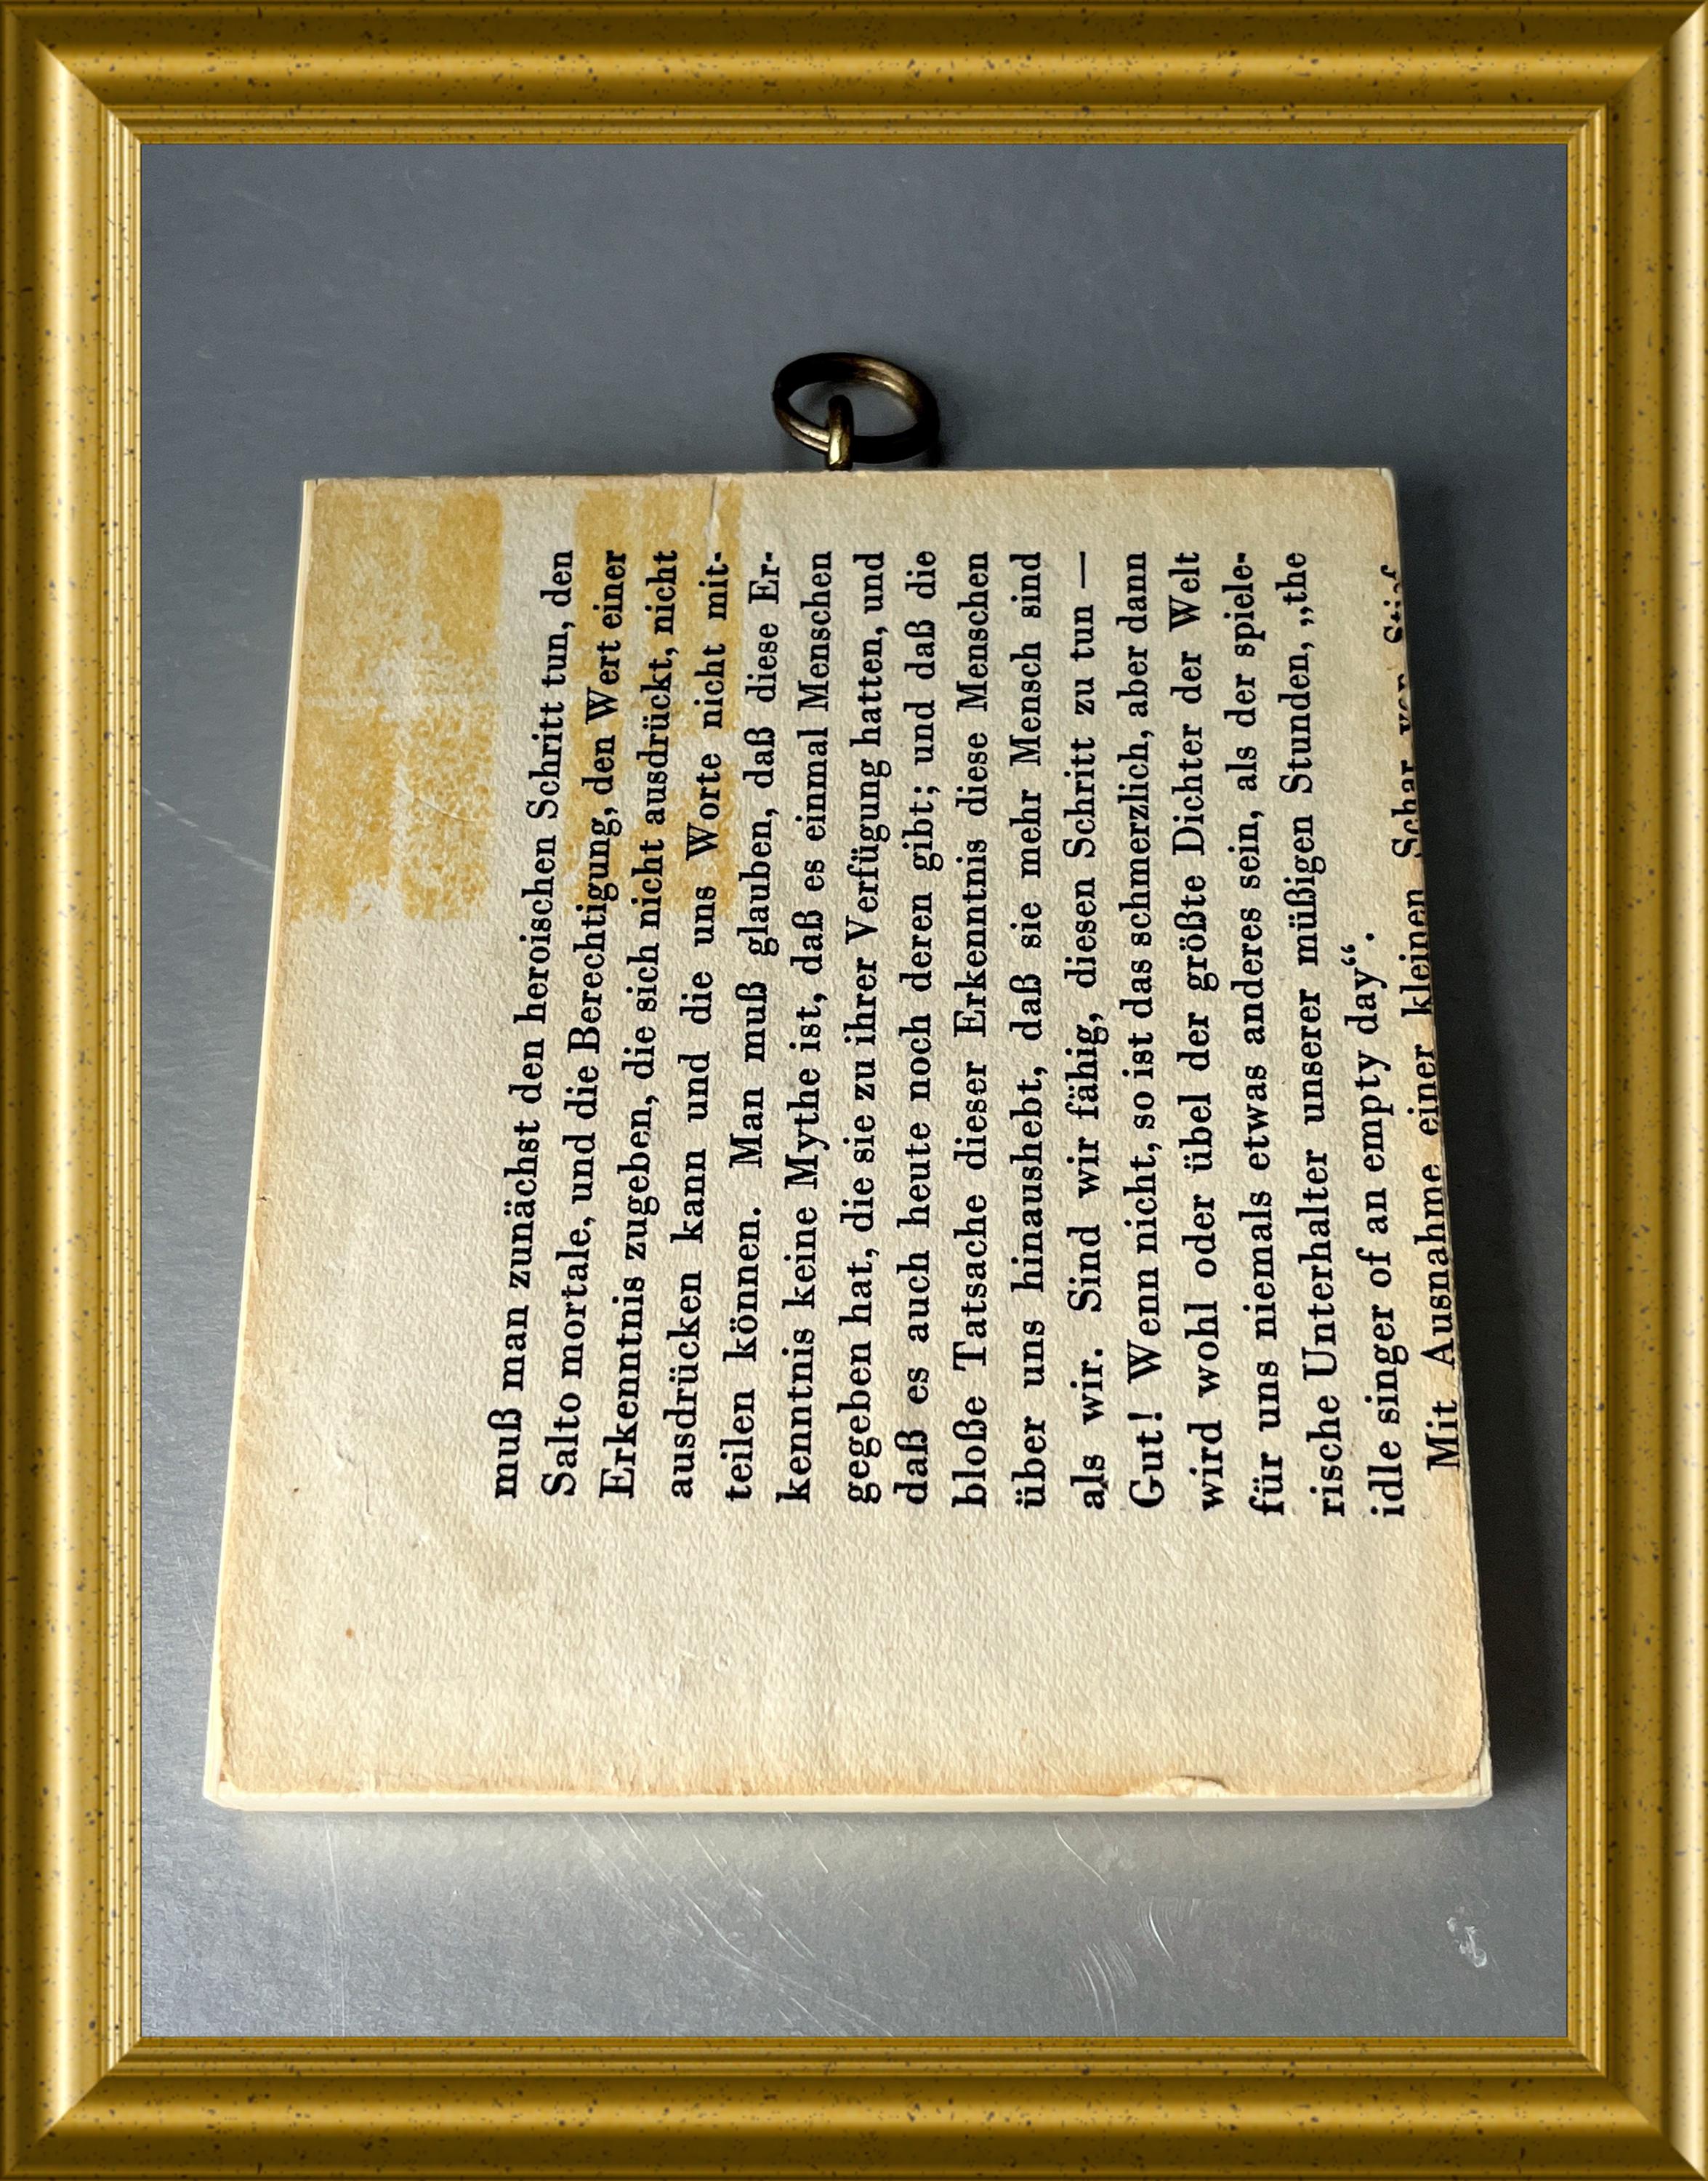 muß man zunächst den heroischen Schritt tun, den
Salto mortale, und die Berechtigung, den Wert einer
Erkenntnis zugeben, die sich nicht ausdrückt, nicht
ausdrücken kann und die uns Worte nicht mit-
teilen können. Man muß glauben, daß diese Er-
kenntnis keine Mythe ist, daß es einmal Menschen
gegeben hat, die sie zu ihrer Verfügung hatten, und
daß es auch heute noch deren gibt; und daß die
bloße Tatsache dieser Erkenntnis diese Menschen
über uns hinaushebt, daß sie mehr Mensch sind
als wir. Sind wir fähig, diesen Schritt zu tun —
Gut! Wenn nicht, so ist das schmerzlich, aber dann
wird wohl oder übel der größte Dichter der Welt
für uns niemals etwas anderes sein, als der spiele-
rische Unterhalter unserer müßigen Stunden, „the
idle singer of an empty day“.
Mit Ausnahme einer kleinen Schar von